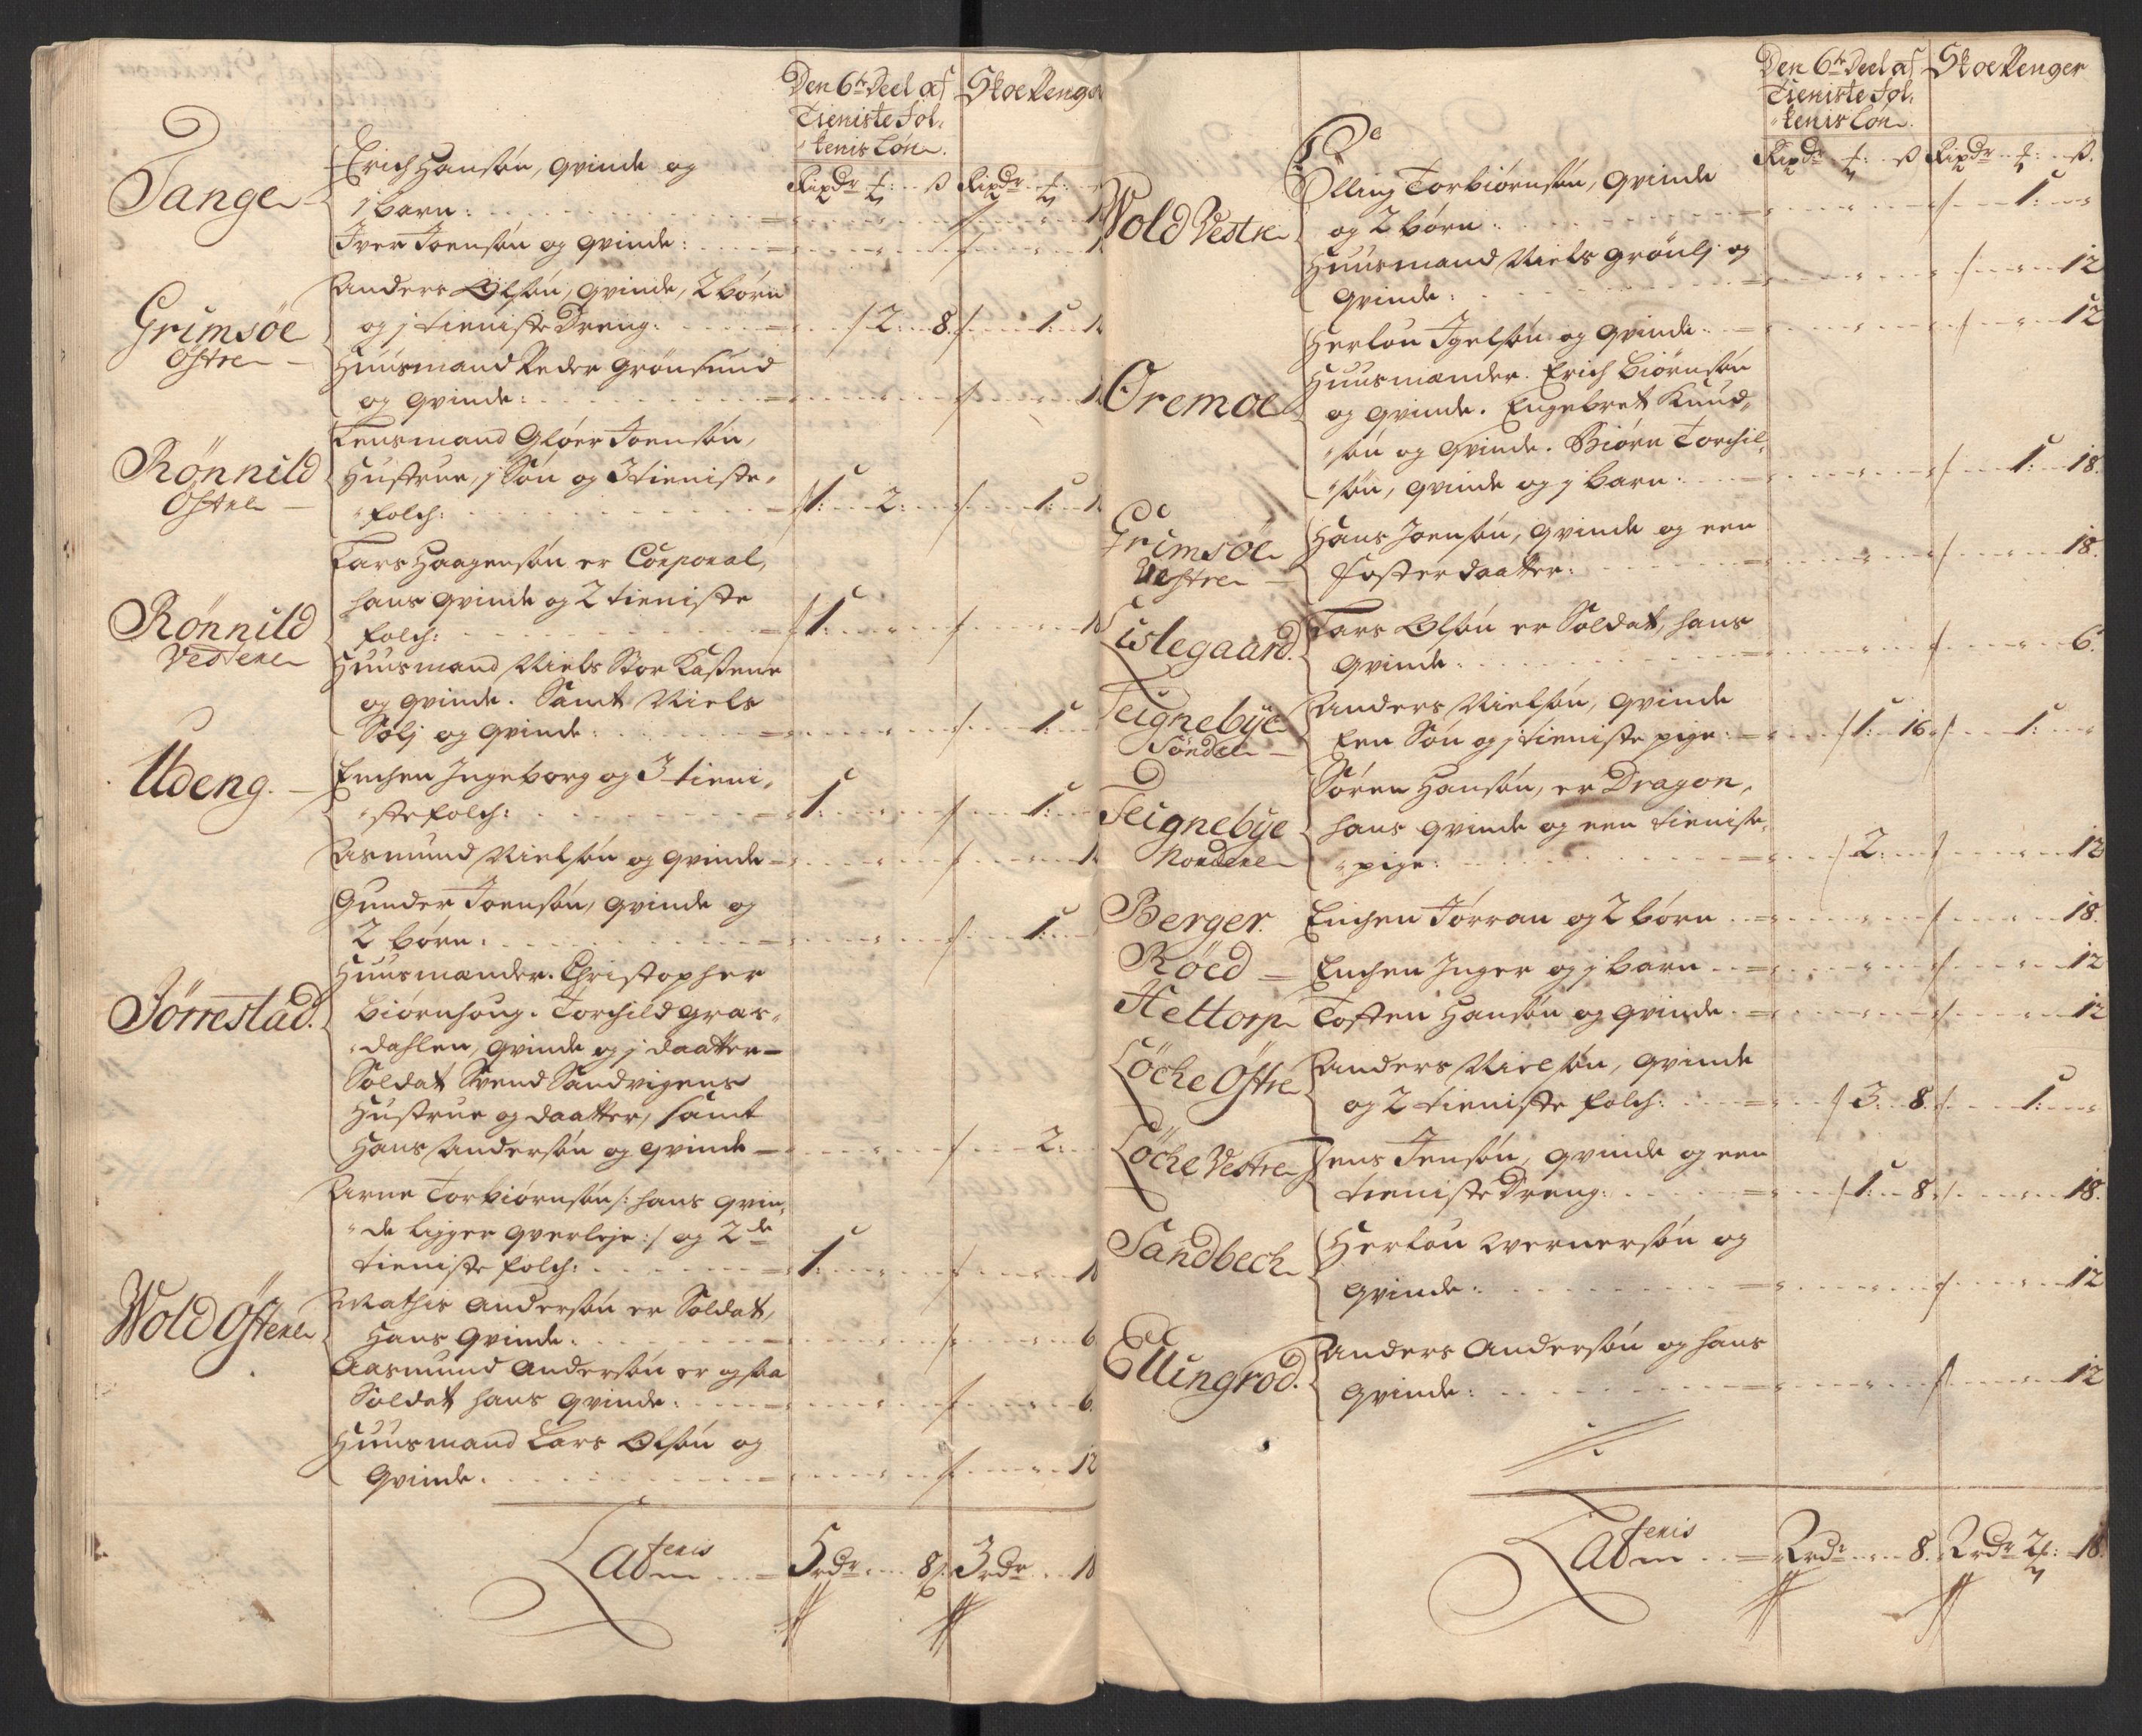 Den 6te Deel af
Tieniste Fol-
kenis Løn.
Skoe Penger
Rixdr ß Rixdr
Tange
Erich Hansøn, qvinde og
1 barn:
Iver Joensøn og qvinde:
Grimsøe
Østre
Anders Olsøn, qvinde, 2 børn
og j tieniste Dreng: 2: 8 1:
Huusmand Peder Grønsund
og qvinde:
Rønnild
Østre
Lensmand Gløer Joensøn,
Hustrue, j Søn og 3 tieniste
folch: 1: 2: 1:
Rønnild
Vestere
Lars Haagensøn er Corporal,
hans qvinde og 2 tieniste
folch: 1:
Huusmand Niels Stor Kassene
og qvinde. Samt Niels
Solj og qvinde: 1:
Udeng.
Enchen Ingeborg og 3 tieni-
ste folch: 1: 1:
Asmund Nielsøn og qvinde
Jørrestad.
Gunder Joensøn, qvinde og
2 børn: 1:
Huusmænder. Christopher
Biørnhoug. Torchild Gras-
dahlen, qvinde og j daatter
Soldat Svend Sandvigens
Hustrue og daatter, samt
Hans Andersøn og qvinde 2:
Wold Østere
Arne Torbiørnsøn /: hans qvin-
de ligger qverleje :/ og 2de
tieniste folch: 1: 18
Mathis Andersøn er Soldat,
Hans qvinde: 6
Aasmund Andersøn er ogsaa
Soldat hans qvinde: 6
Huusmand Lars Olsøn og
qvinde. 12
Latenis 5 rdr 8 ß 3 rdr 18
Den 6te Deel af
Tieniste Fol-
kenis Løn.
Skoe Penger
Rixdr ß Rixdr ß
Wold Vestre
Elling Torbiørnsøn, qvinde
og 2 børn: 1:
Huusmand Niels Grønlj og
qvinde: 12
Herlou Igelsøn og qvinde 12
Oremoe
Huusmænder. Erich Biørnsøn
og qvinde. Engebret Knud-
søn og qvinde. Biørn Torchil-
søn, qvinde og j barn: 1: 18.
Grimsøe
Vestre
Hans Joensøn, qvinde og een
Foster daatter: 18.
Lislegaard.
Lars Olsøn er Soldat, hans
qvinde: 6.
Teignebye
Søndre
Anders Nielsøn, qvinde
Een Søn og j tieniste pige: 1: 16 1:
Teignebye
Nordere
Søren Hansøn, er Dragon,
hans qvinde og een tieniste
pige: 2: 12
Berger. Enchen Jørran og 2 børn 18.
Røed Enchen Inger og j barn 12
Hettorp Tosten Hansøn og qvinde 12
Løche Østre
Anders Nielsøn, qvinde
og 2 tieniste folch: 3: 8. 1:
Løche Vestre
Jens Jensøn, qvinde og een
tieniste Dreng: 1: 8 18.
Sandbech
Herlou Wernersøn og
qvinde: 12
Ellingrød.
Anders Andersøn og hans
qvinde: 12
Latenis 2 rdr 8. 2 rdr 2 18.